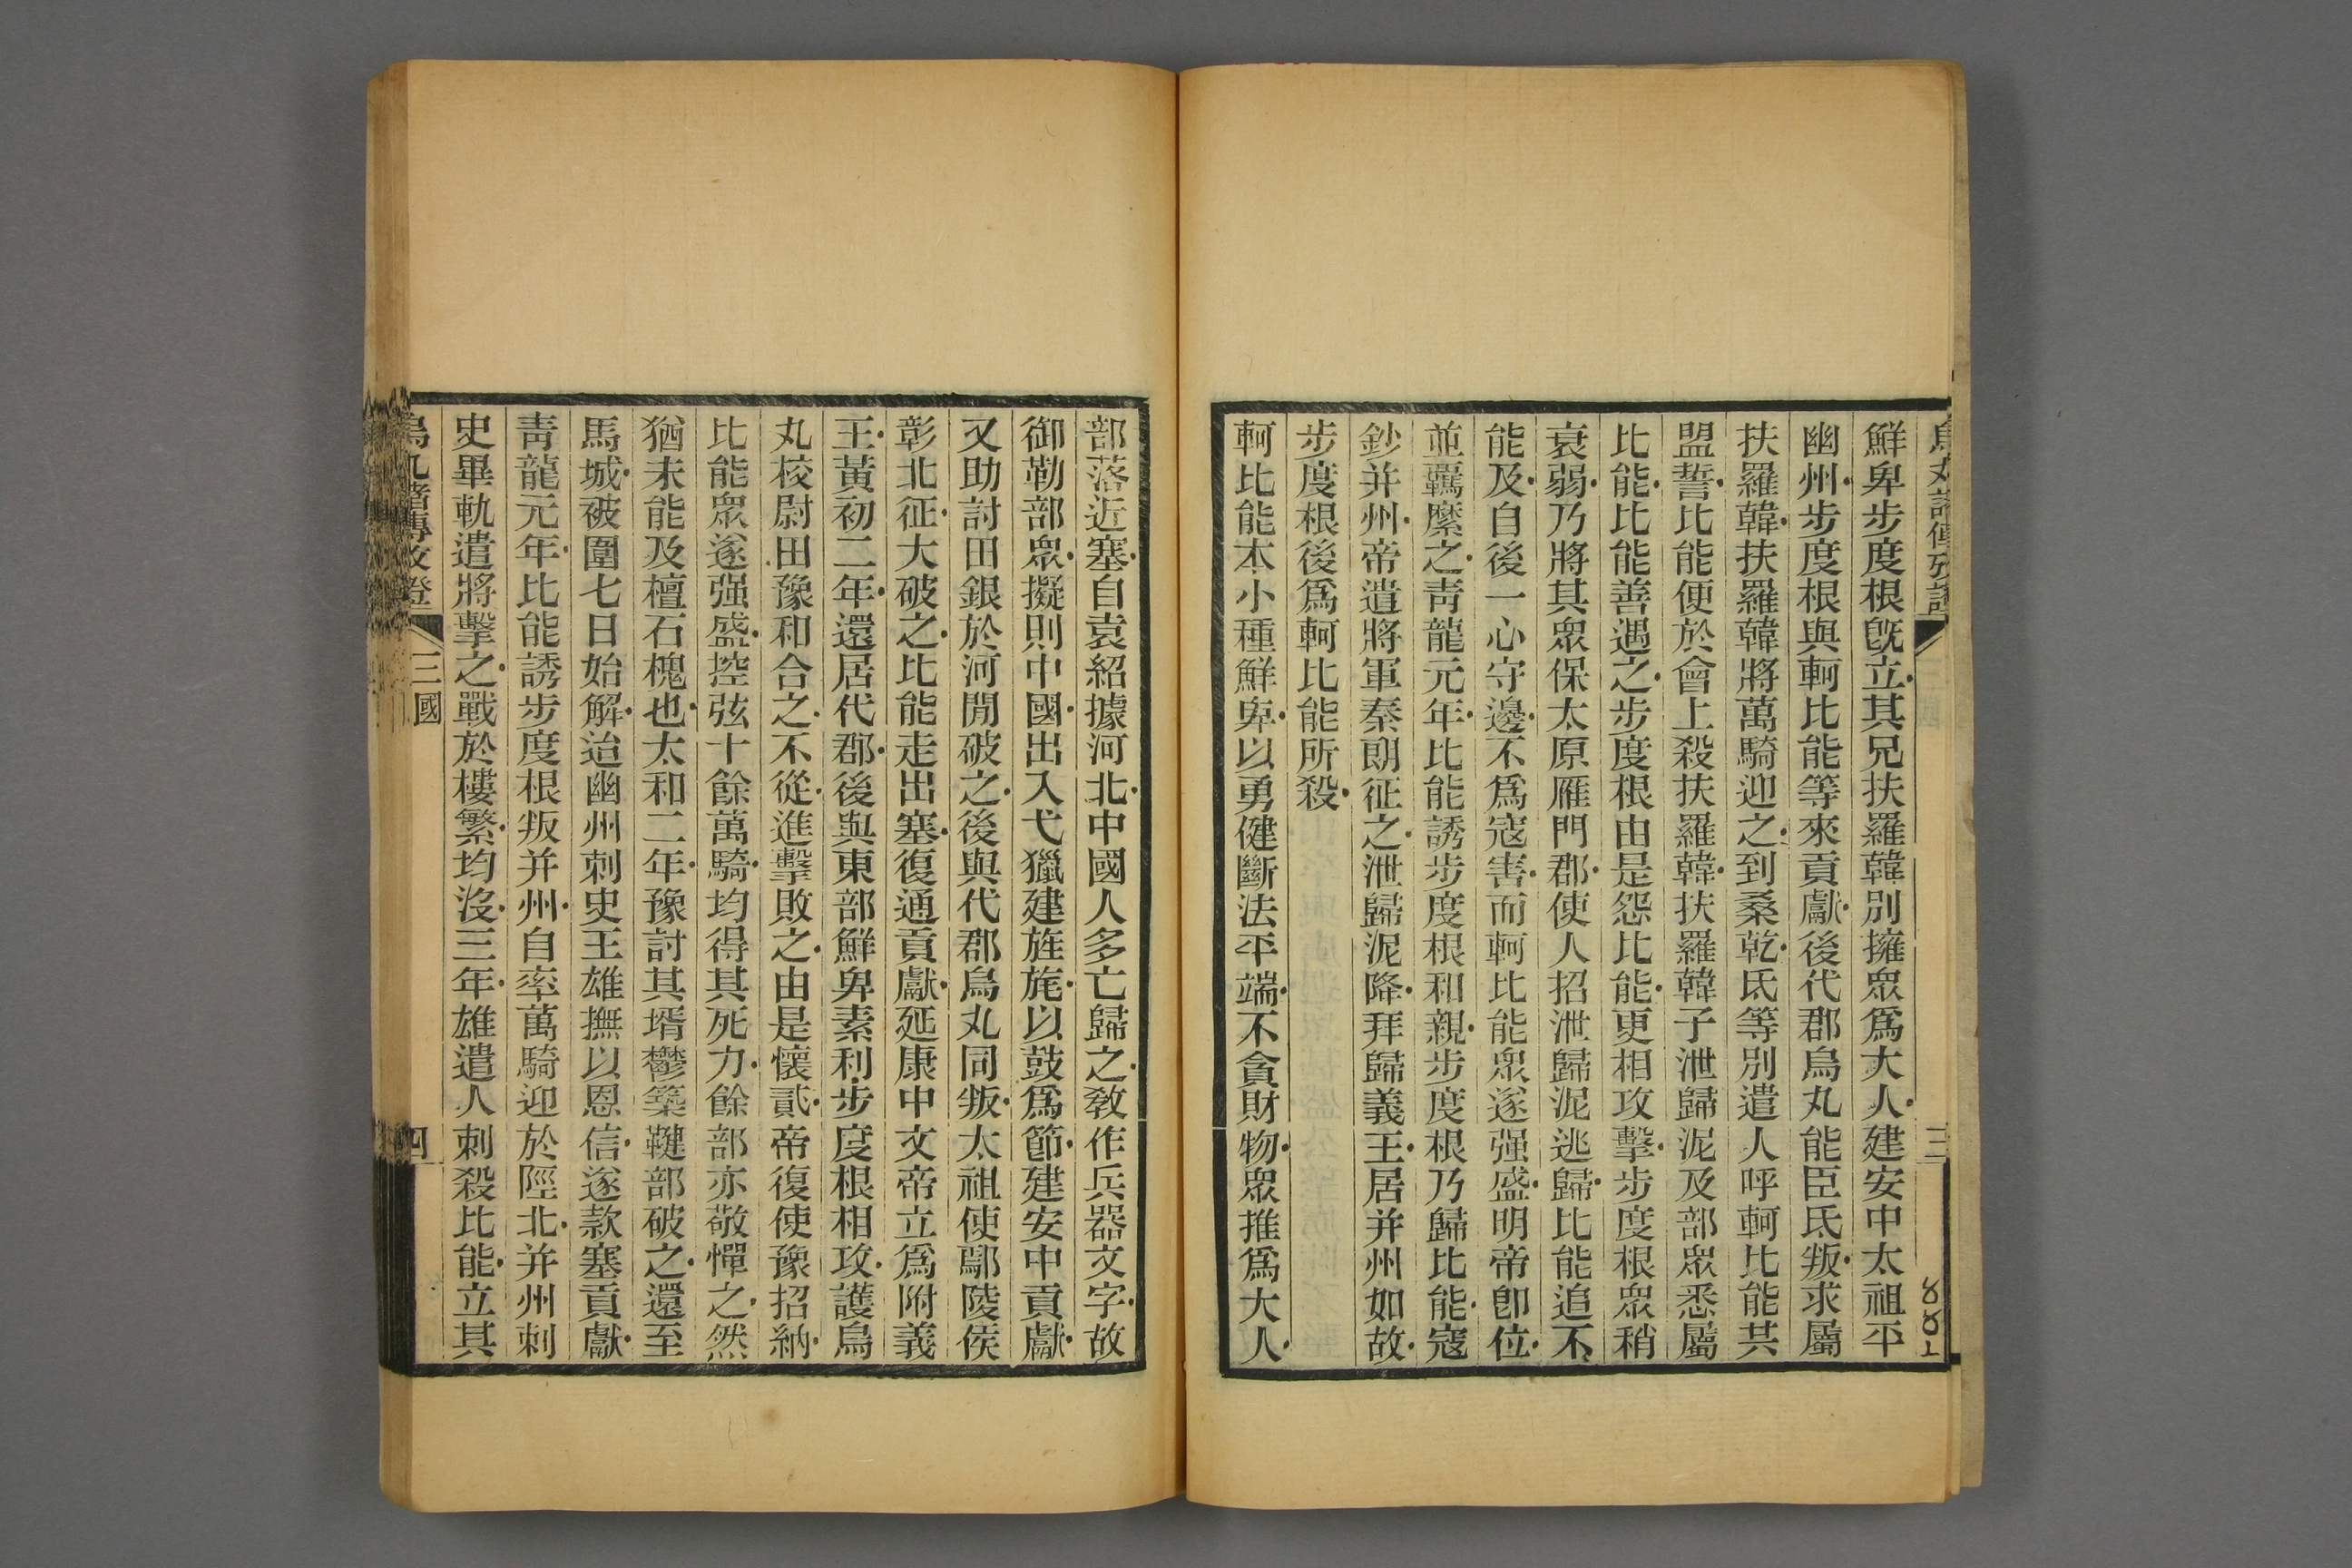 鮮卑步度根旣立其兄扶羅韓別擁眾爲大人建安中太祖平
幽州步度根與軻比能等來貢獻後代郡烏丸能臣氐叛求屬
扶羅韓扶羅韓將萬騎迎之到桑乾氐等別遣人呼軻比能共
盟誓比能便於會上殺扶羅韓扶羅韓子泄歸泥及部眾悉屬
比能比能善遇之步度根由是怨比能更相攻擊步度根眾稍
衰弱乃將其眾保太原雁門郡使人招泄歸泥逃歸比能追不
能及自後一心守邊不爲寇害而軻比能眾遂强盛明帝卽位
並羈縻之靑龍元年比能誘步度根和親步度根乃歸比能寇
鈔并州帝遣將軍秦朗征之泄歸泥降拜歸義王居并州如故
步度根後爲軻比能所殺
軻比能本小種鮮卑以勇健斷法平端不貪財物眾推爲大人
部落近塞自袁紹據河北中國人多亡歸之敎作兵器文字故
御勒部眾擬則中國出入弋獵建旌旄以鼓爲節建安中貢獻
又助討田銀於河閒破之後與代郡烏丸同叛太祖使鄢陵侯
彰北征大破之比能走出塞復通貢獻延康中文帝立爲附義
王黃初二年還居代郡後與東部鮮卑素利步度根相攻護烏
丸校尉田豫和合之不從進擊敗之由是懷貳帝復使豫招納
比能眾遂强盛控弦十餘萬騎均得其死力餘部亦敬憚之然
猶未能及檀石槐也太和二年豫討其壻鬱築鞬部破之還至
馬城被圍七日始解迨幽州刺史王雄撫以恩信遂款塞貢獻
靑龍元年比能誘步度根叛并州自率萬騎迎於陘北并州刺
史畢軌遣將擊之戰於樓繁均沒三年雄遣人刺殺比能立其
三國
四